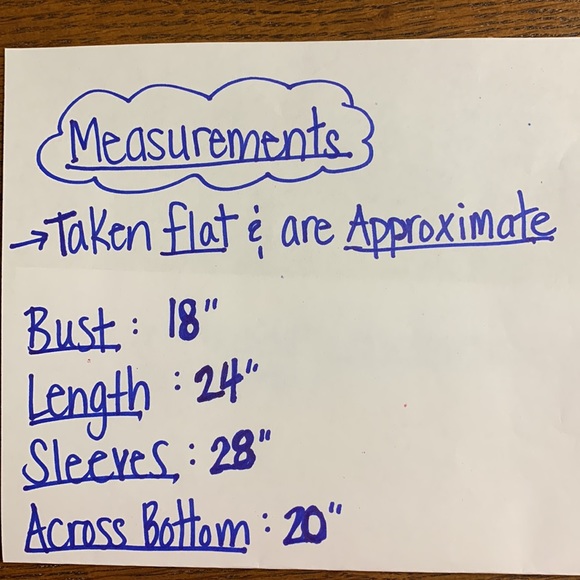 Measurements
→Taken flat & are Approximate
Bust: 18"
Length: 24"
Sleeves: 28"
Across Bottom: 20"